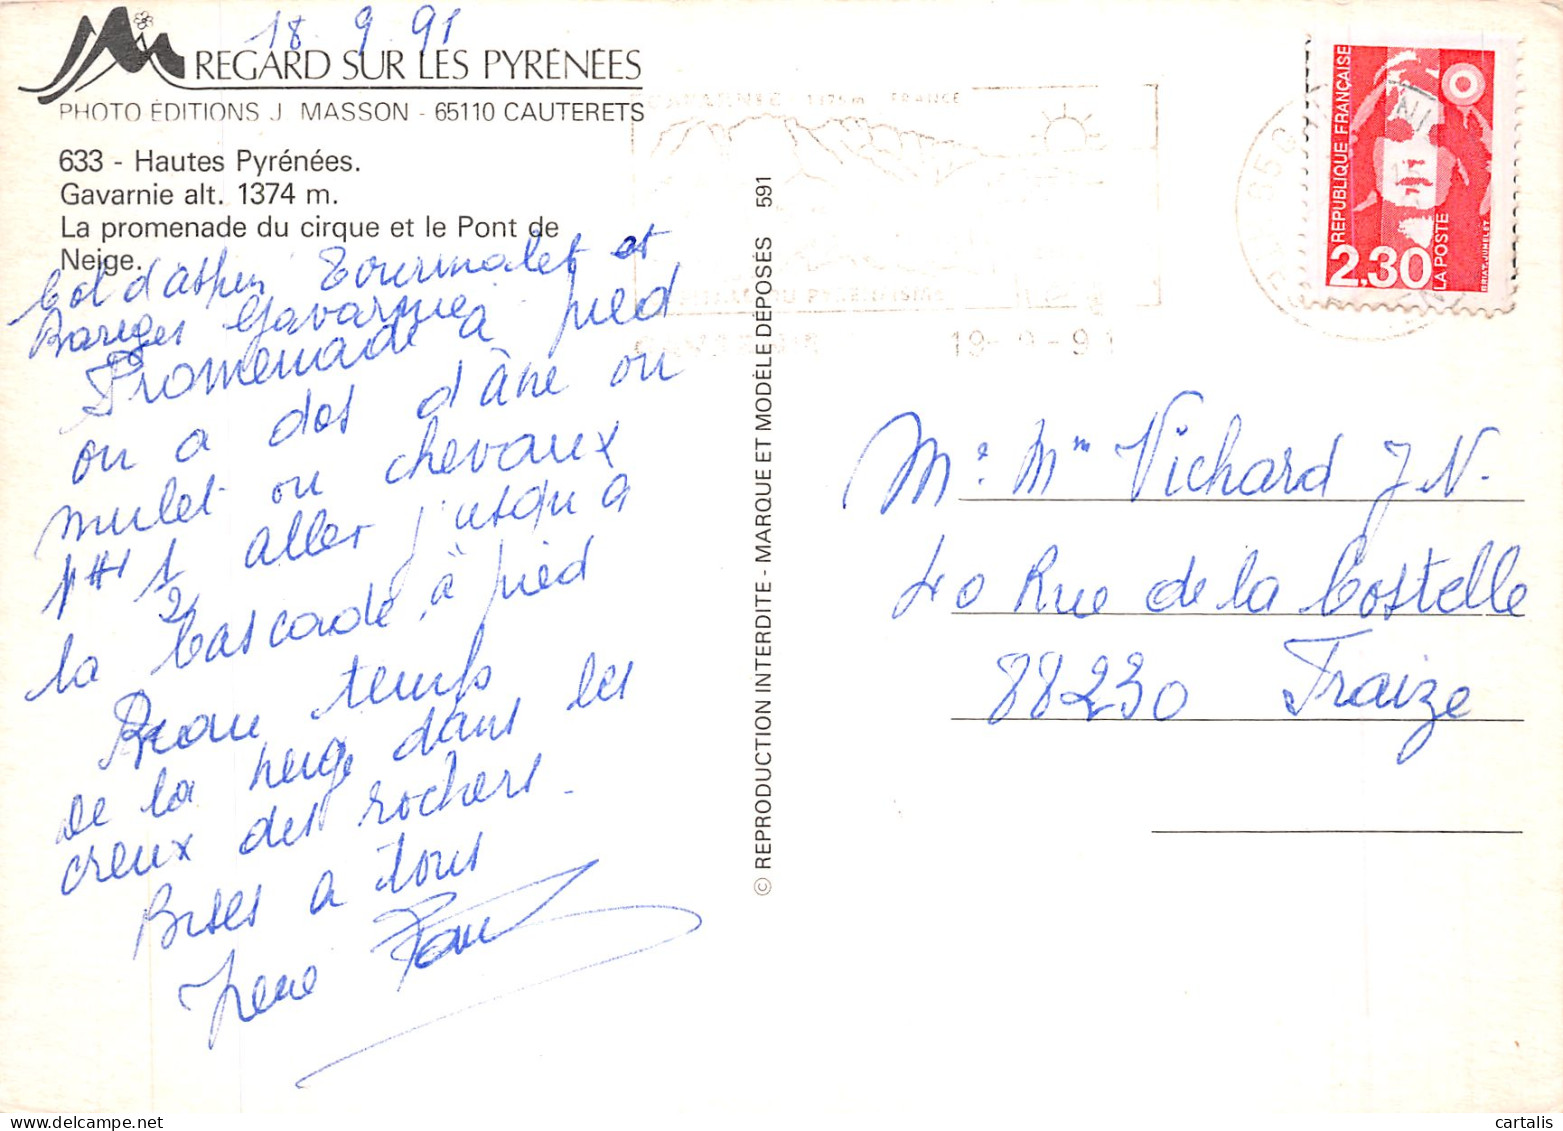 18.9.91
REGARD SUR LES PYRÉNÉES
PHOTO ÉDITIONS J. MASSON - 65110 CAUTERETS
633 - Hautes Pyrénées.
Gavarnie alt. 1374 m.
La promenade du cirque et le Pont de
Neige.
Col d'aspin Tourmalet et
Bareges Gavarnie
Promenade a pied
ou a dos d'âne ou
mulet ou chevaux
1H 1/2 aller jusqu a
la Cascade, à pied
Beau temps
de la neige dans les
creux des rochers.
Bises a tous
Irene
© REPRODUCTION INTERDITE - MARQUE ET MODÈLE DÉPOSÉS 591
1375m FRANCE
19-9-91
RÉPUBLIQUE FRANÇAISE
2,30
LA POSTE
BRIAT-JUMELET
Mr Mm Vichard J N.
40 Rue de la Costelle
88230 Fraize
cartalis